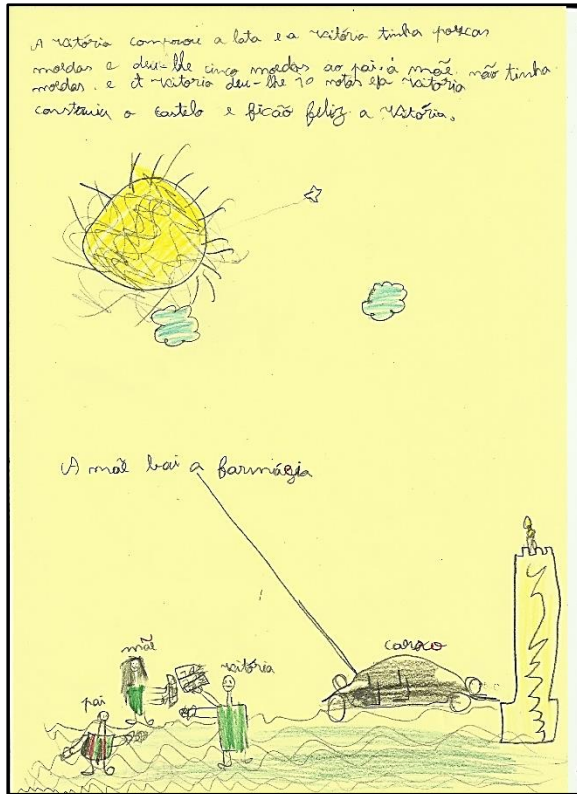 A vitória comprou a lata e a vitória tinha poucas
moedas e deu-lhe cinco moedas ao pai. à mãe não tinha
moedas. e a vitória deu-lhe 10 notas e a vitória
construiu o castelo e ficão feliz a vitória.
A mãe bai a farmágia
mãe
vitória
carxo
pai